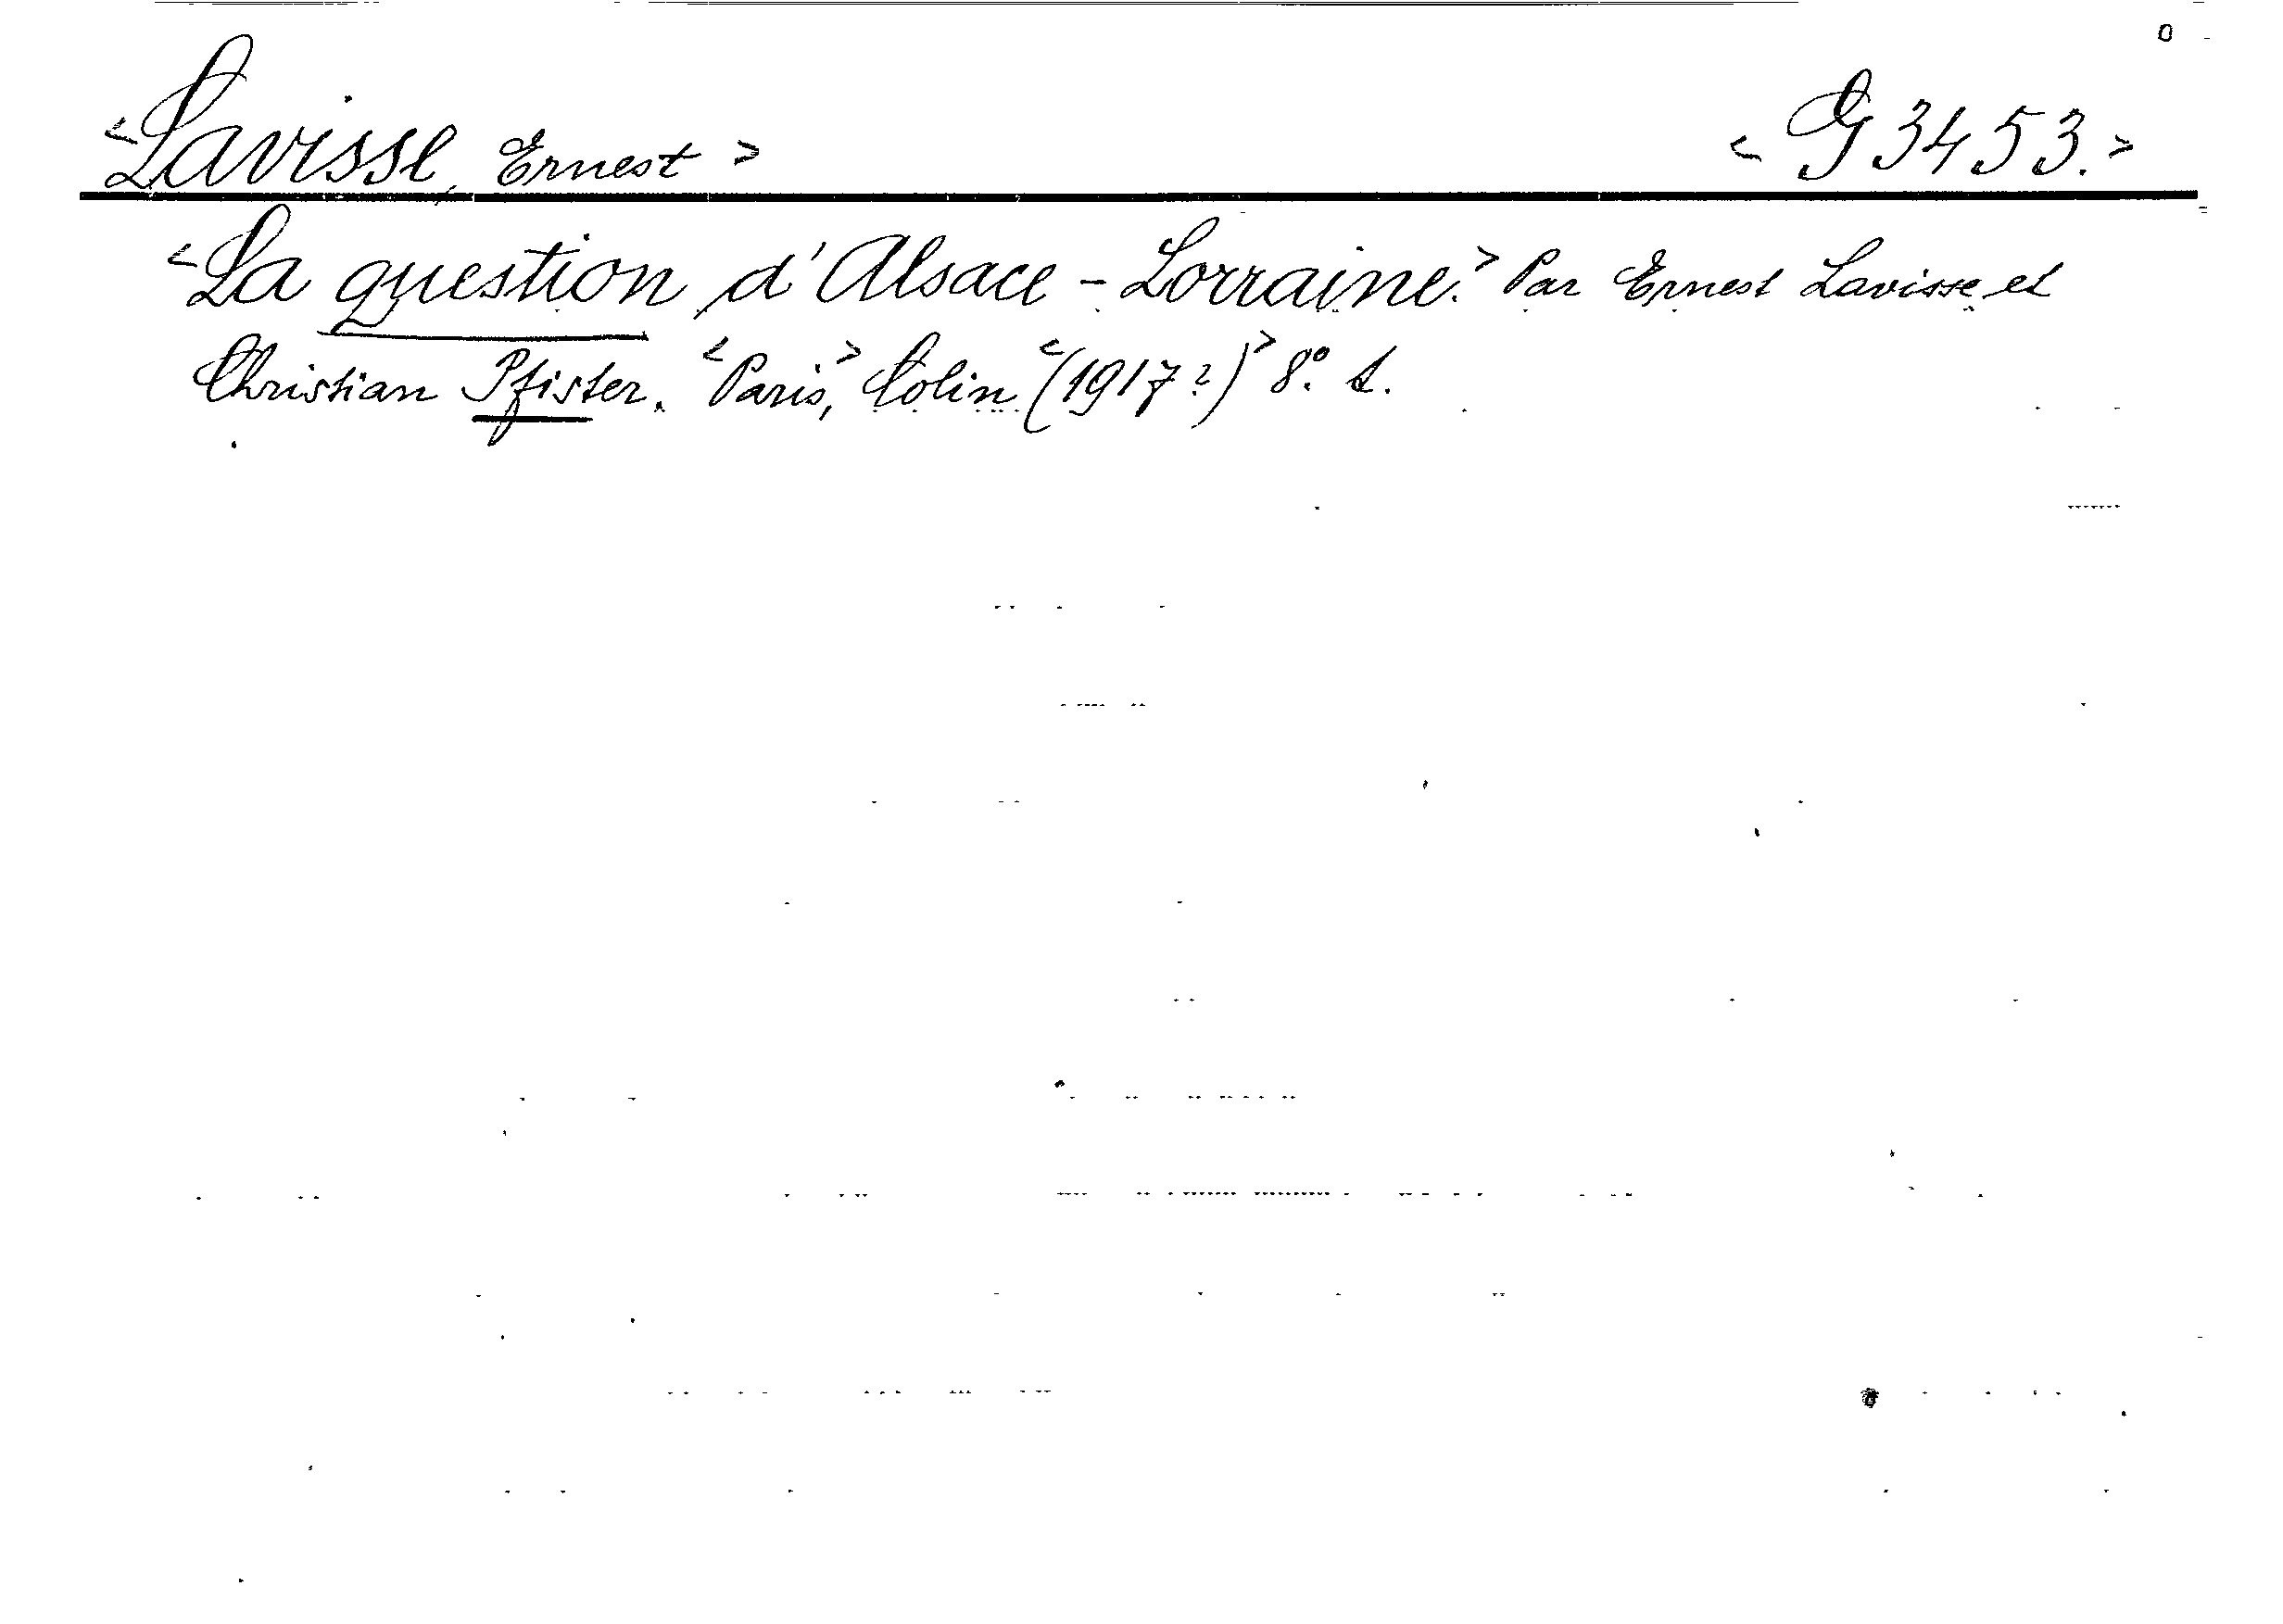 <Lavisse, Ernest> <G 3453.>
<La question d'Alsace-Lorraine.> Par Ernest Lavisse et
Christian Pfister. <Paris,> Colin <(1917?)> 8°.